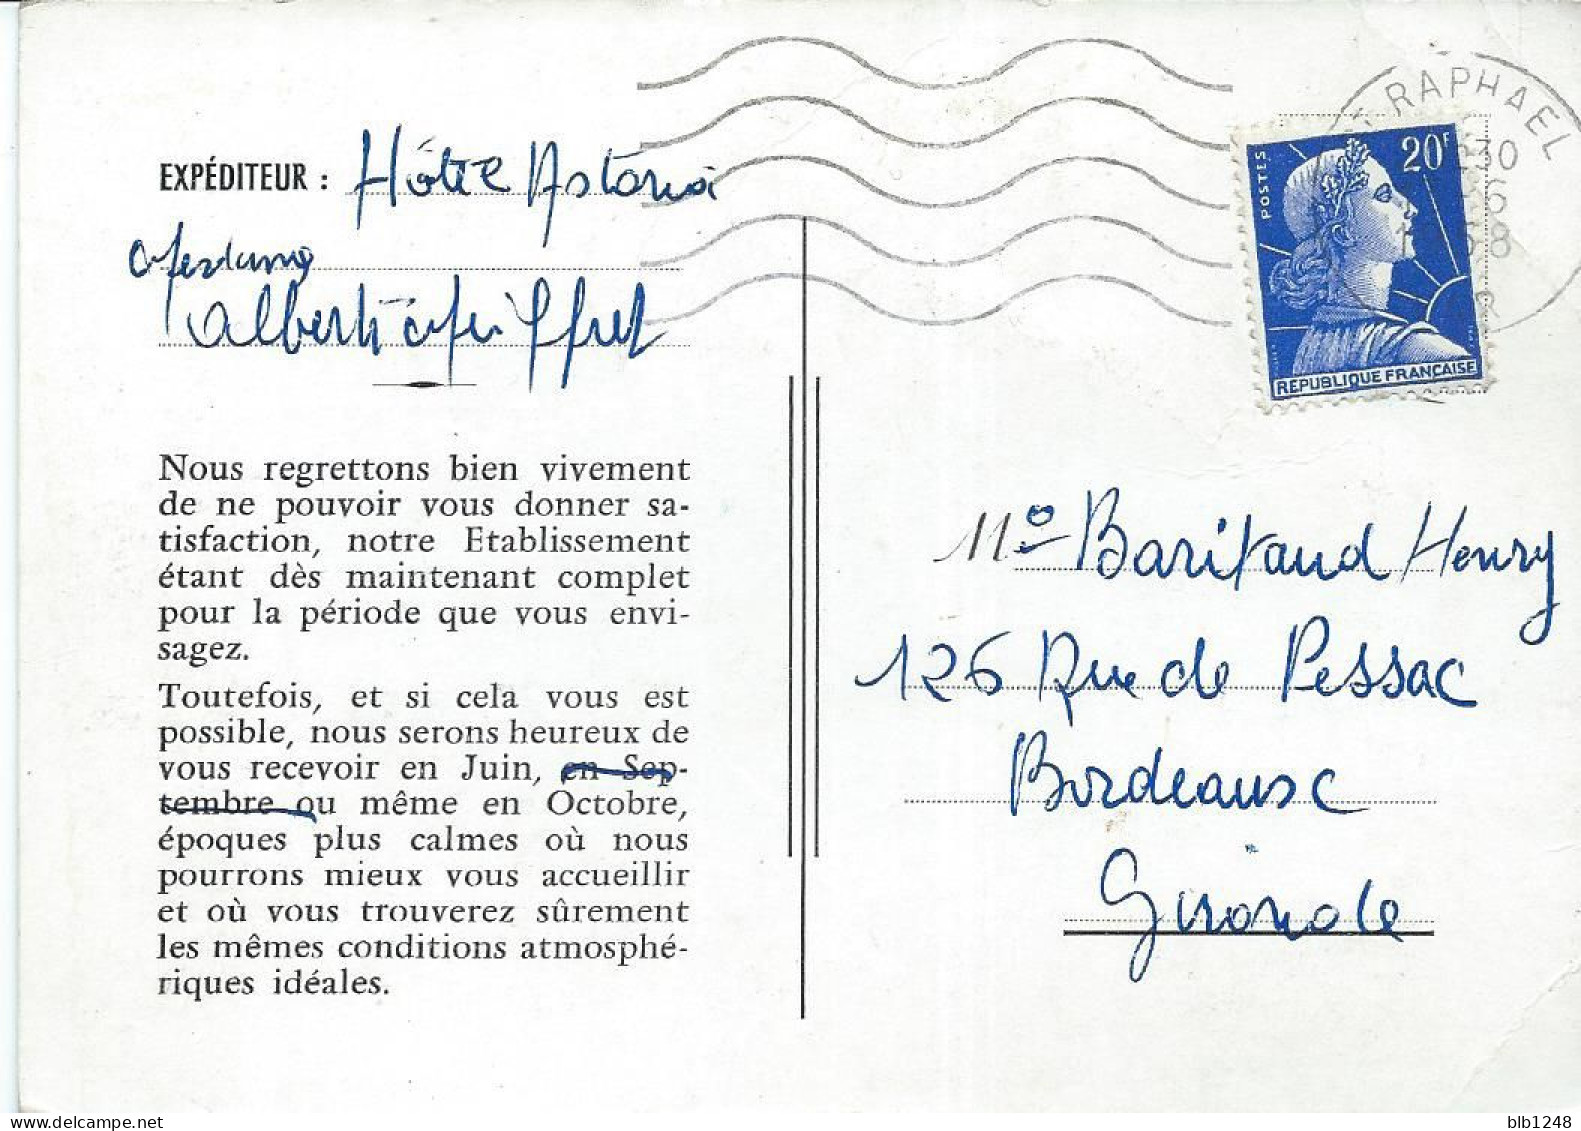 RAPHAEL
30
6
POSTES
20F
REPUBLIQUE FRANÇAISE
EXPÉDITEUR : Hôtel Astoria
Nous regrettons bien vivement
de ne pouvoir vous donner sa-
tisfaction, notre Etablissement
étant dès maintenant complet
pour la période que vous envi-
sagez.
Toutefois, et si cela vous est
possible, nous serons heureux de
vous recevoir en Juin, en Sep-
tembre ou même en Octobre,
époques plus calmes où nous
pourrons mieux vous accueillir
et où vous trouverez sûrement
les mêmes conditions atmosphé-
riques idéales.
Baritaud Henry
126 Rue de Pessac
Bordeaux
Gironde
blb1248